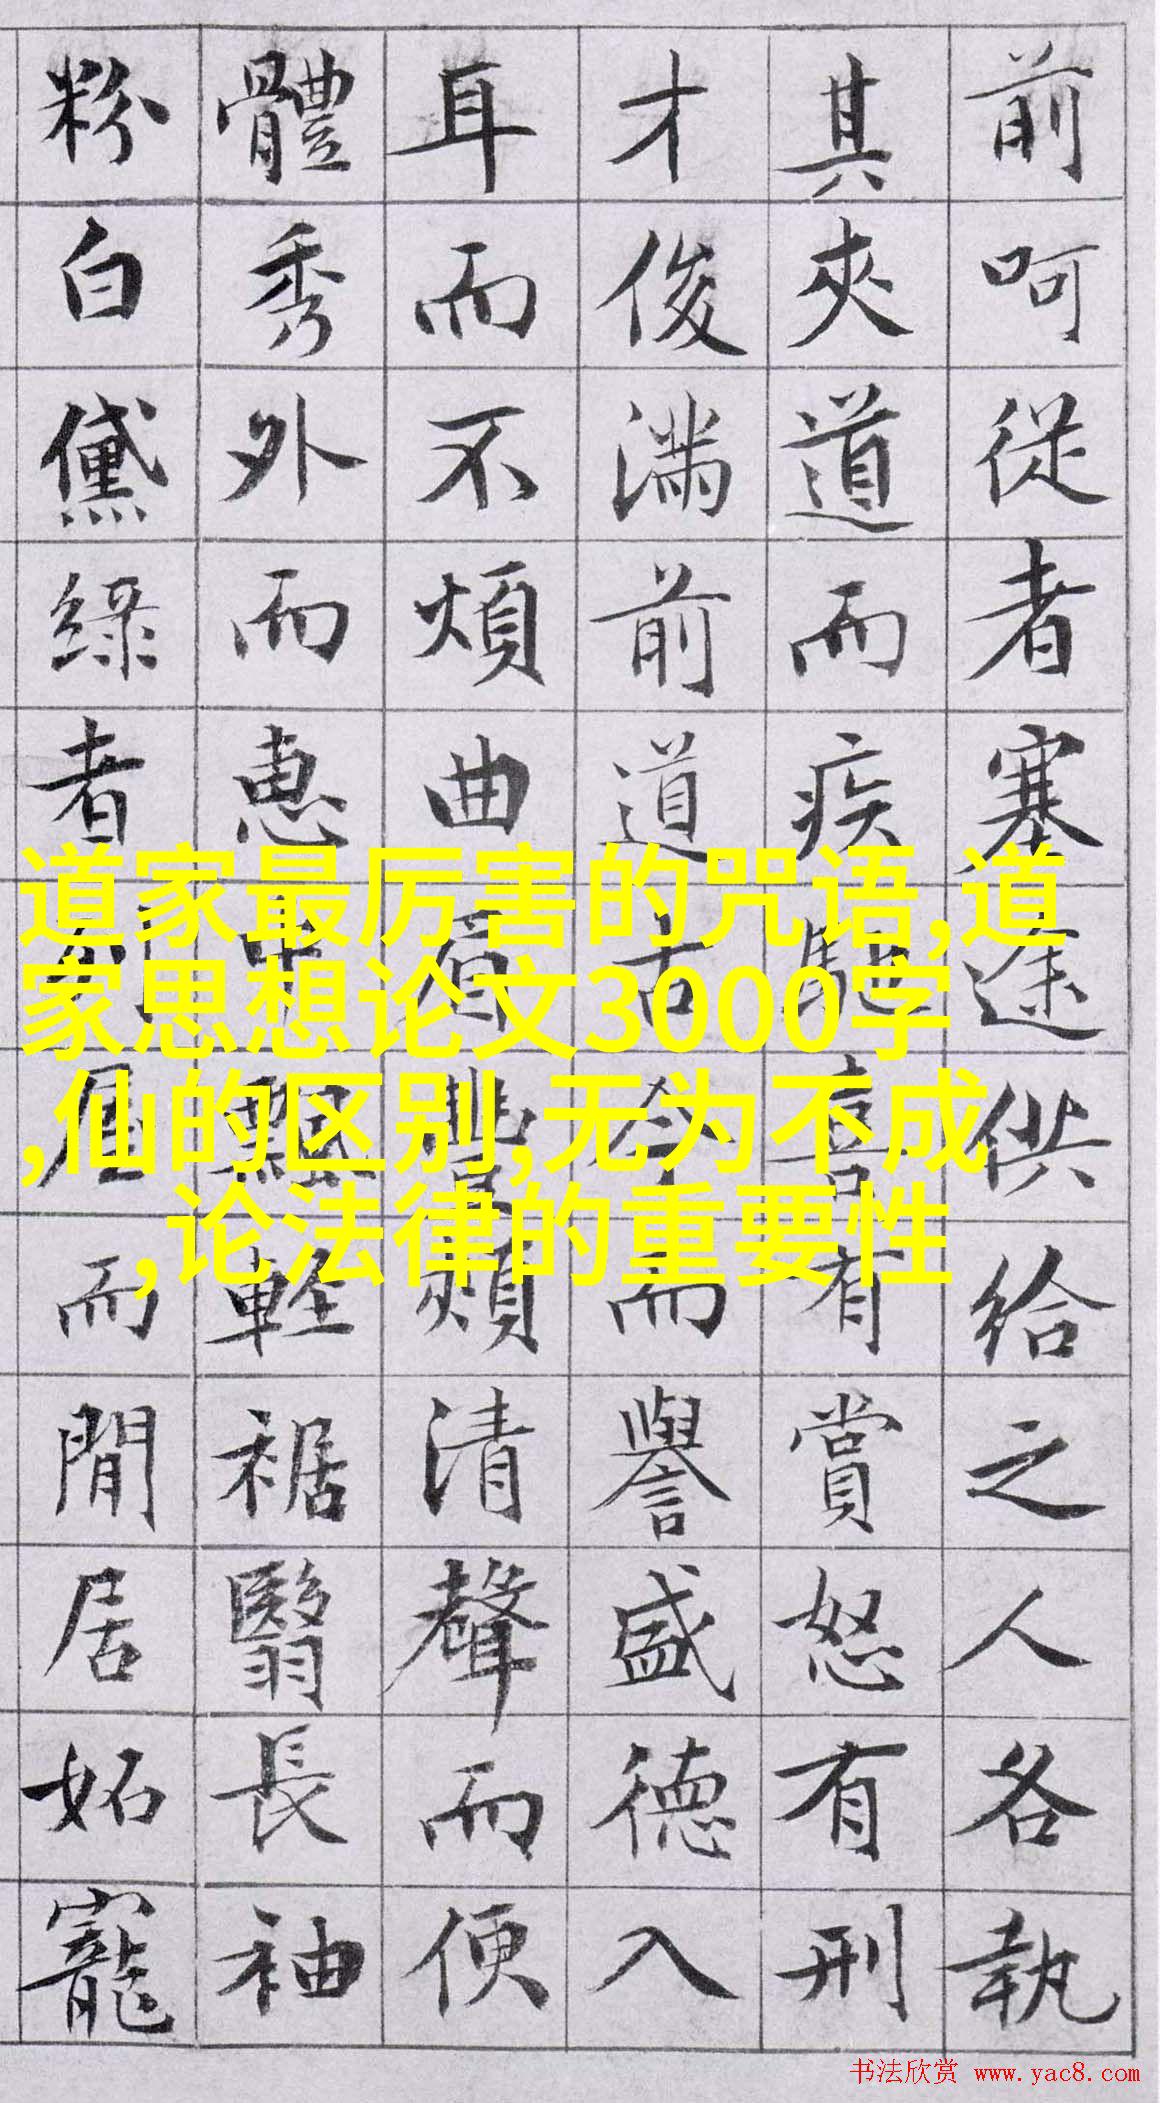 前呵從者塞途供給之人各執
其夾道而疾馳喜有賞怒有刑
才俊滿前道古今而譽盛德入
耳而不煩曲眉豐頰清聲而便
體秀外而惠中飄輕裾翳長袖
粉白黛綠者列屋而閒居妬寵
道家最厉害的咒语,道
家思想论文3000字
,仙的区别,无为不成
,论法律的重要性
书法欣赏 www.yac8.com